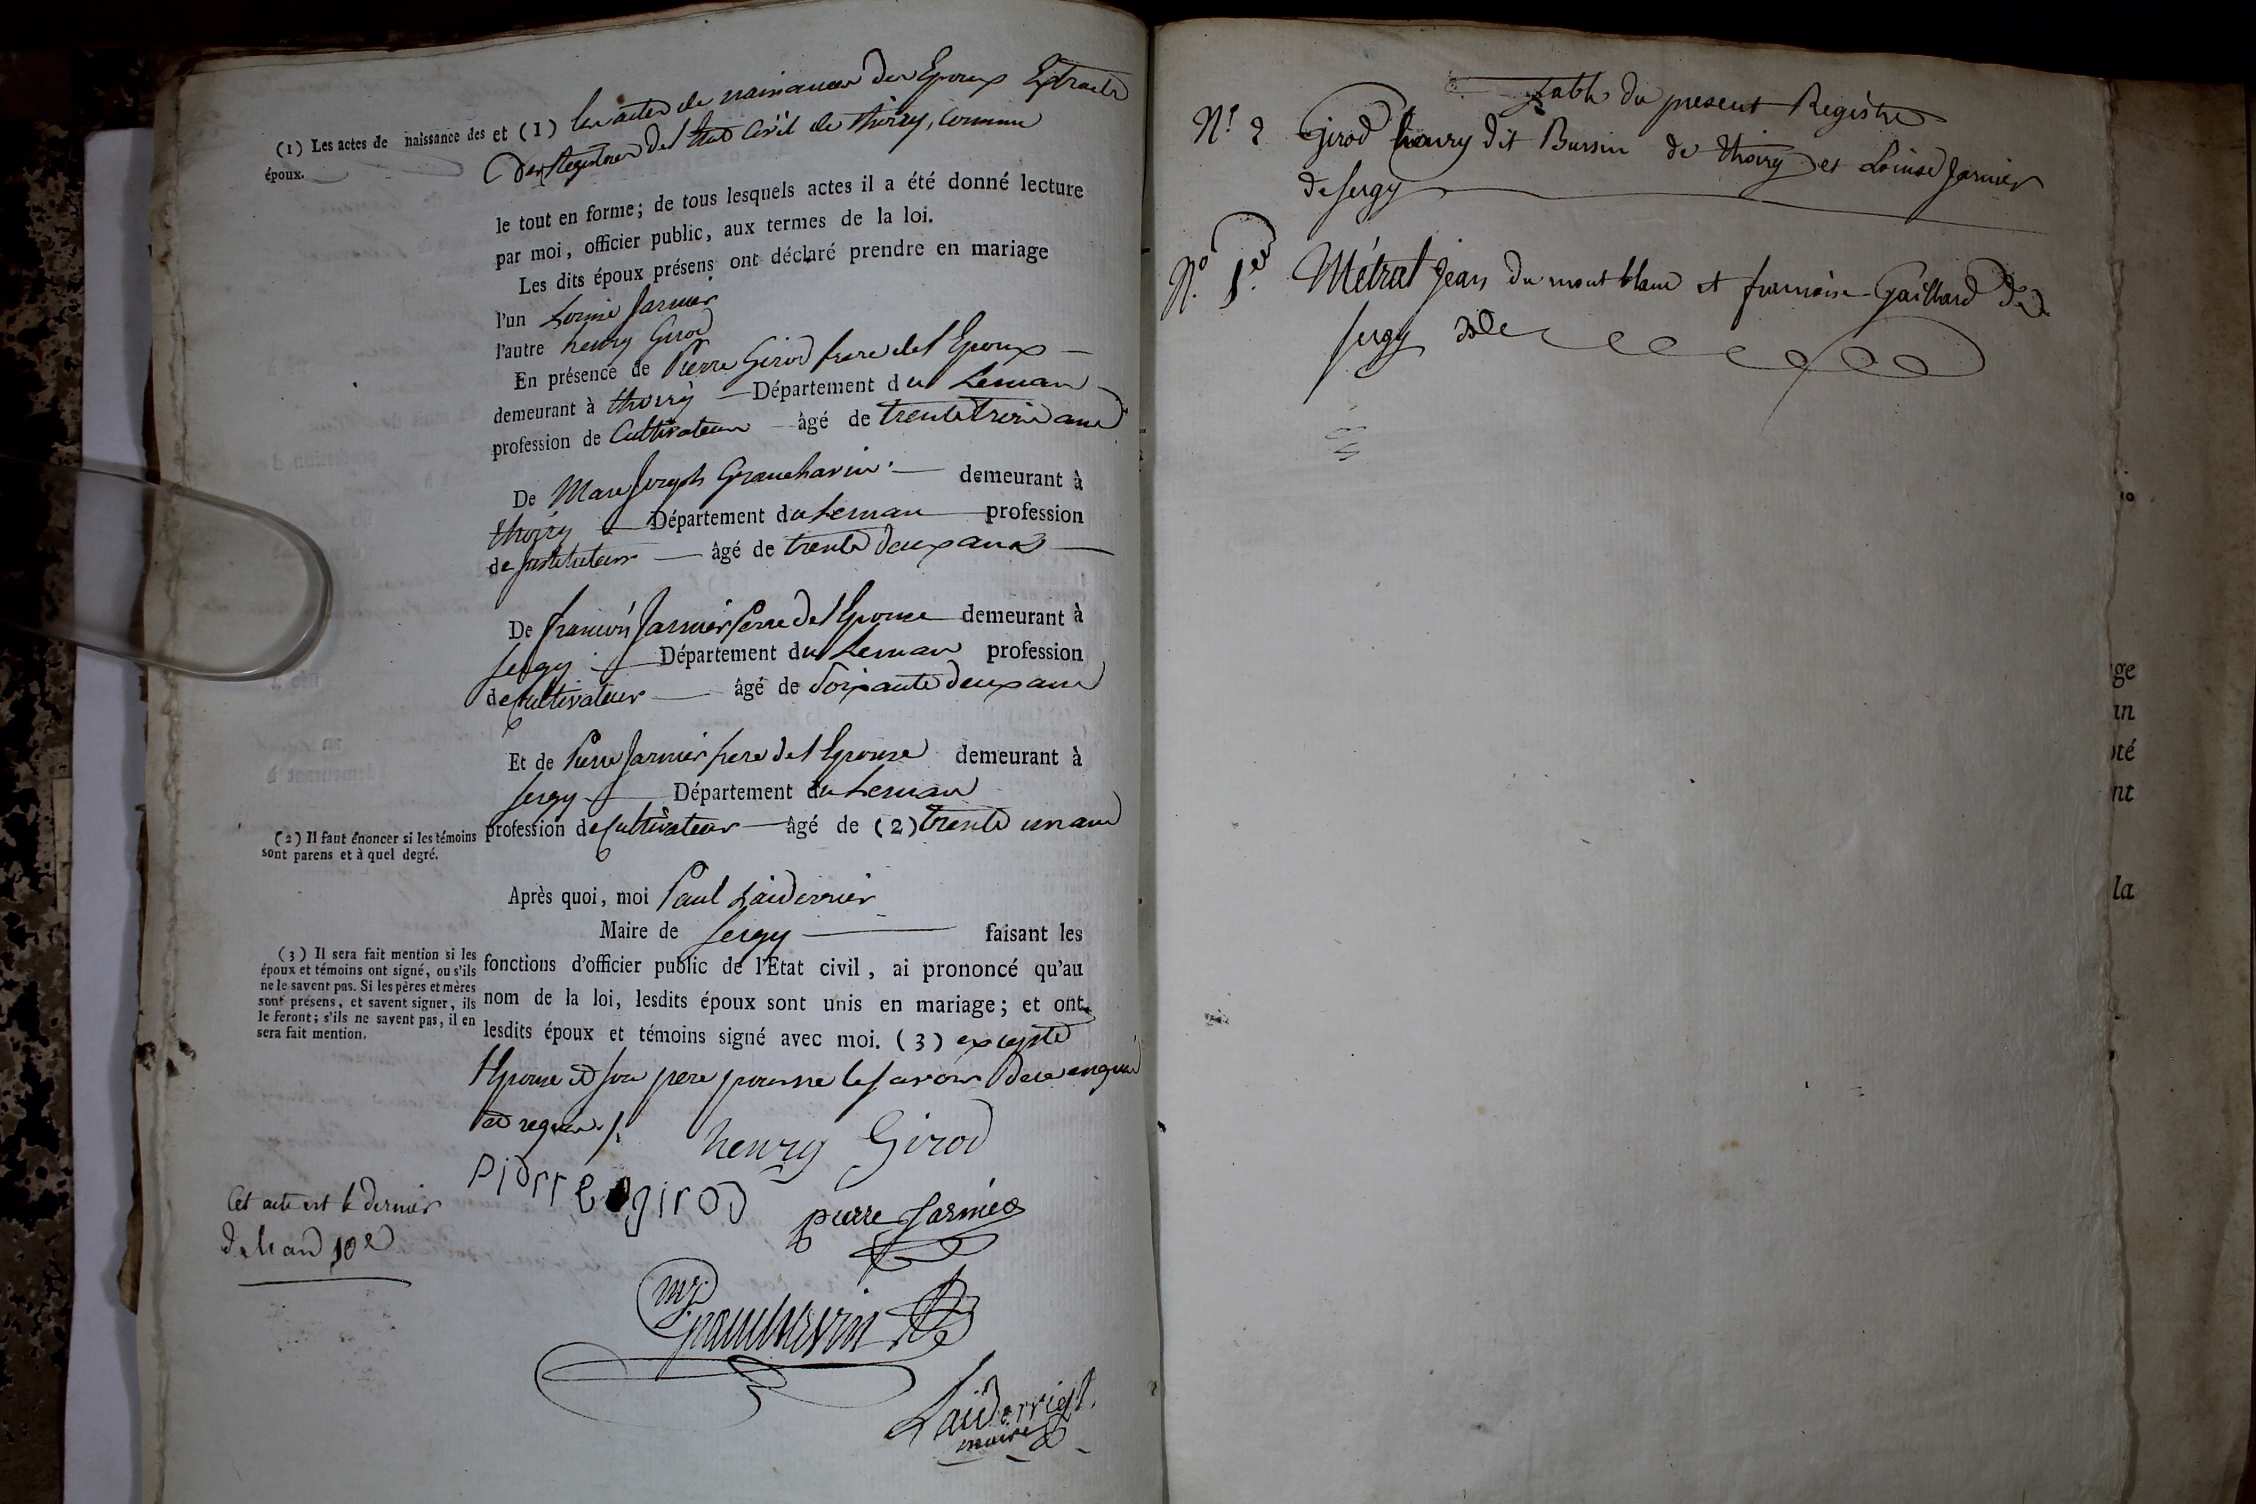 (1) Les actes de naissance des
époux.
et (1) les actes de naissances des Epoux Extraits
des Registres de l'Etat Civil de thoiry, commune
le tout en forme; de tous lesquels actes il a été donné lecture
par moi, officier public, aux termes de la loi.
Les dits époux présens ont déclaré prendre en mariage
l'un Louise Jarnier
l'autre henry Girod
En présence de Pierre Girod frere de l'Epoux
demeurant à thoiry Département du Leman
profession de Cultivateur âgé de trente trois ans
De Marc Joseph Grancharin demeurant à
thoiry Département du Leman profession
de Instituteur âgé de trente deux ans
De françois Jarnier Perre de l'Epouse demeurant à
Sergy Département du Leman profession
de Cultivateur âgé de Soixante deux ans
Et de Pierre Jarnier frere de l'Epouse demeurant à
Sergy Département du Leman
profession de Cultivateur âgé de (2) trente un ans
(2) Il faut énoncer si les témoins
sont parens et à quel degré.
Après quoi, moi Paul Laiderrier
Maire de Sergy faisant les
fonctions d'officier public de l'Etat civil, ai prononcé qu'au
nom de la loi, lesdits époux sont unis en mariage; et ont
lesdits époux et témoins signé avec moi. (3) excepté
(3) Il sera fait mention si les
époux et témoins ont signé, ou s'ils
ne le savent pas. Si les pères et mères
sont présens, et savent signer, ils
le feront; s'ils ne savent pas, il en
sera fait mention.
l'Epouse et son pere pour ne le savoir de ce enquis
et requis ./.
henry Girod
Piorre girod
pierre Jarnier
Cet acte est le dernier
de l'an 10e
mj Grancharin
Laiderrier
maire
Table du present Registre
N.º 2 Girod henry dit Bursin de thoiry et Louise Jarnier
de Sergy
N.º 1.er Métral Jean du mont blanc et francoise Gaillard de
Sergy
ge
un
oté
nt
la